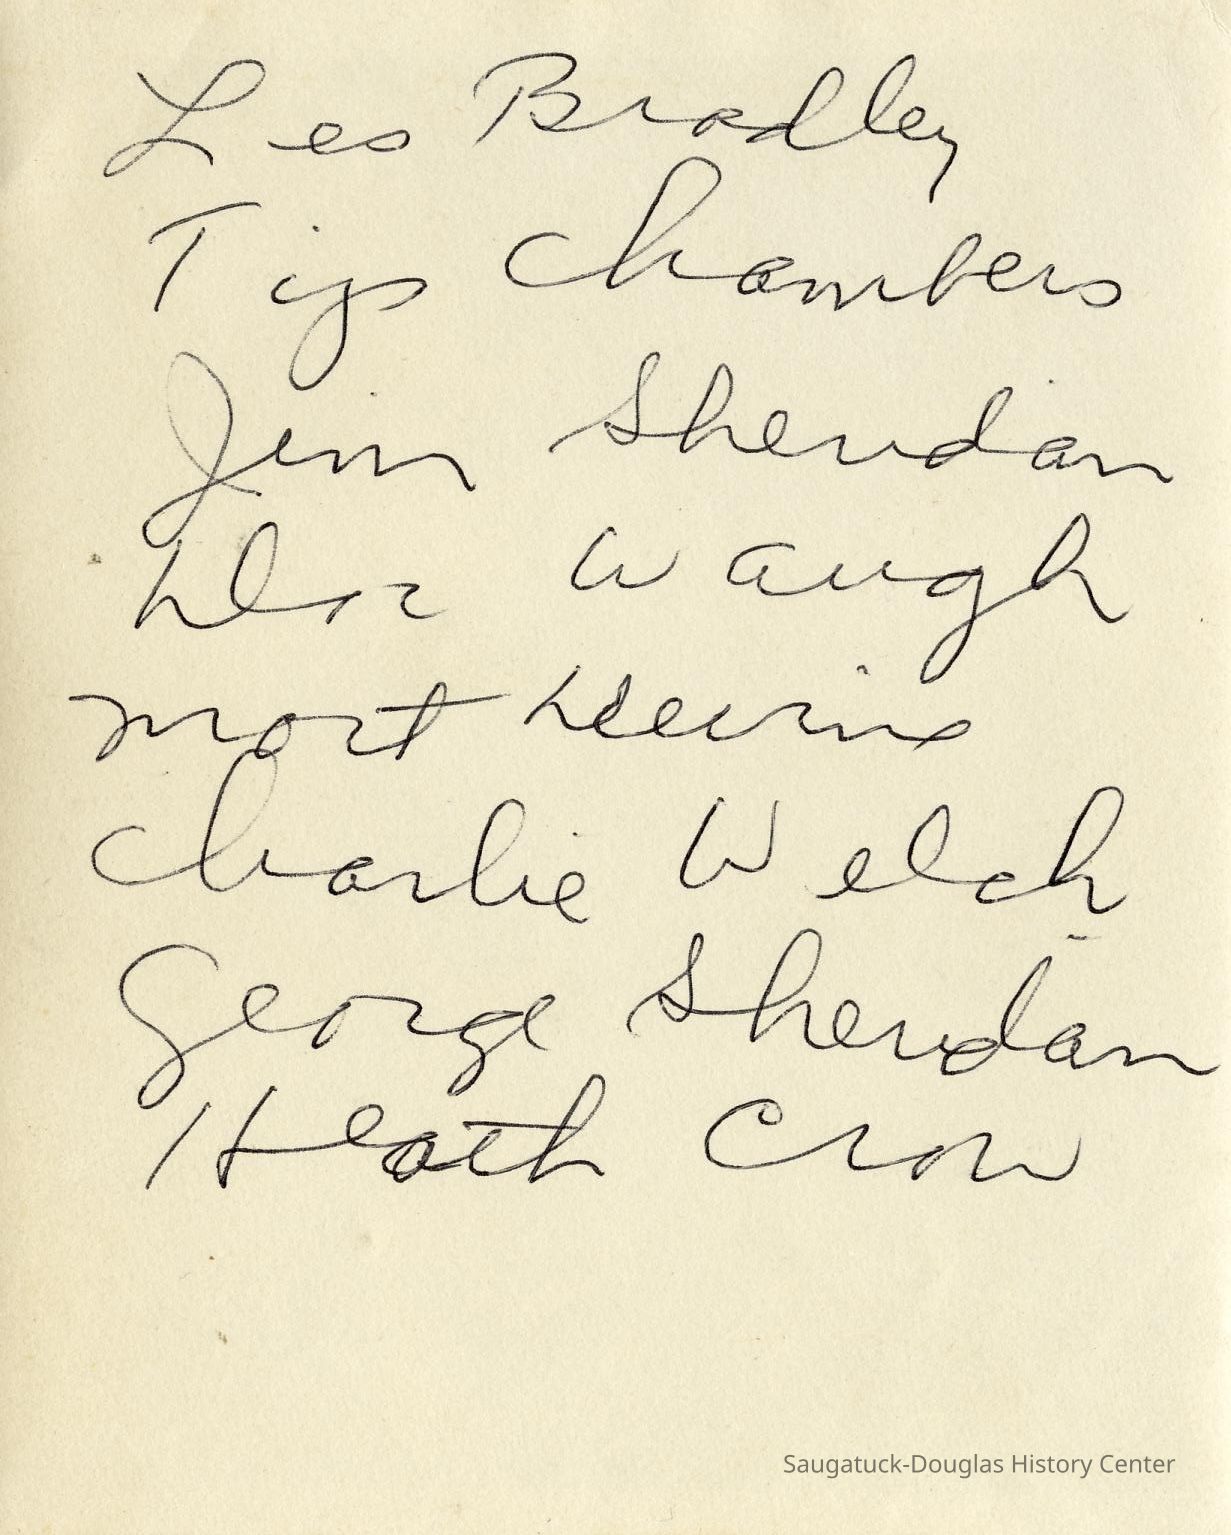 Les Bradley
Tigs Chambers
Jim Sheridan
Waugh
Mort
Charlie Welch
George Sheridan
Heath Crow
Saugatuck-Douglas History Center